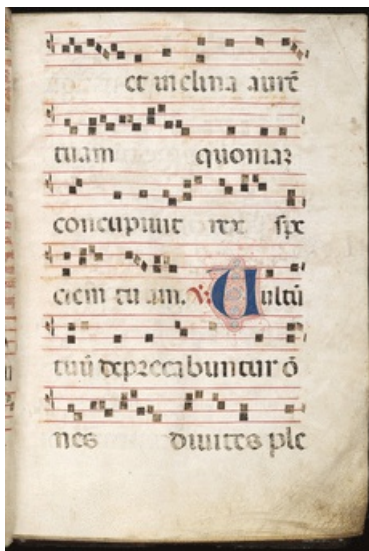 et inclina aurē
tuam quoniaꝫ
concupivit rex spe
ciem tuam. ℣. Vultū
tuū deprecabuntur ō
nes divites ple